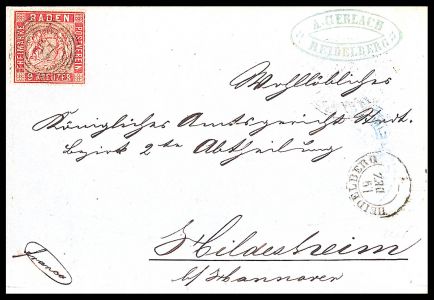 BADEN
FREIMARKE
POSTVEREIN
9 KREUZER
A. GERLACH
HEIDELBERG
Wohllöbliches
Königliches Amtsgericht Stadt.
bezirk 2te Abtheilung
HEIDELBERG
DEZ
Hildesheim
b/ Hannover
franco